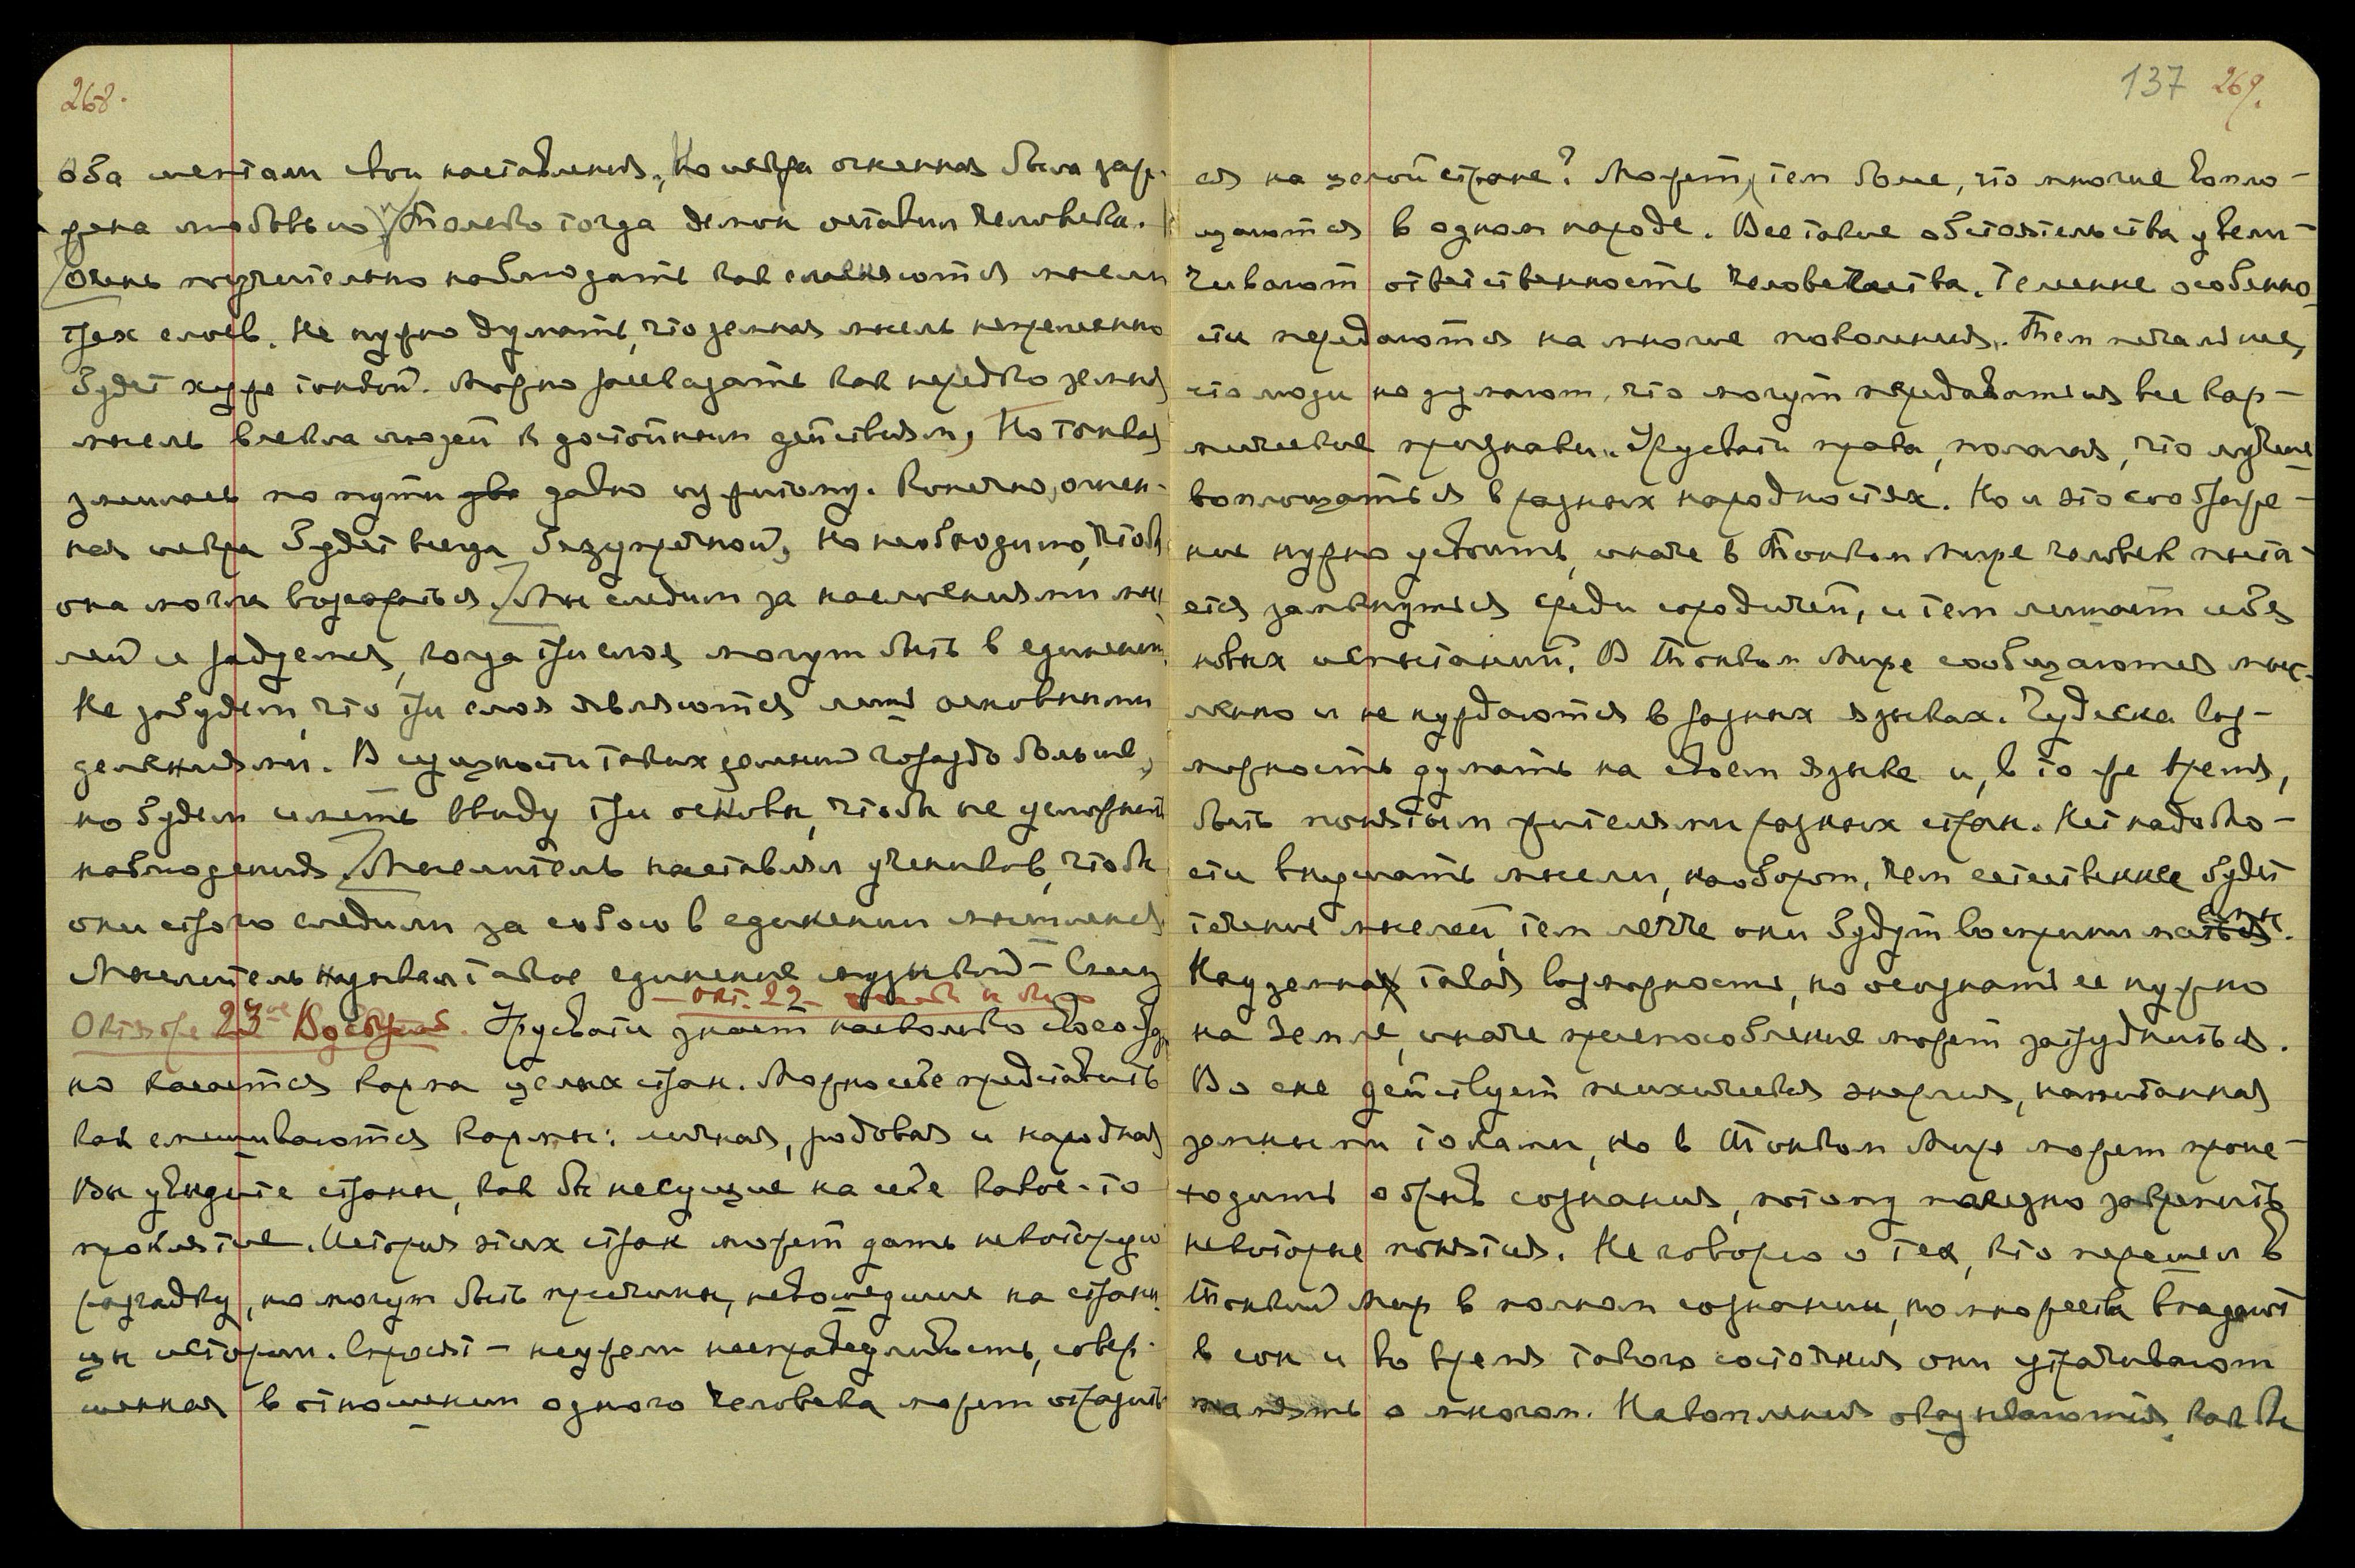 268.
Оба шептали свои наставления, Но искра огненная была заж-
жена любовью, Только тогда демон оставил человека.
Очень поучительно наблюдать как сменяются мысли
трех слоев. Не нужно думать, что земная мысль непременно
будет хуже тонкой. Можно рассказать как нередко земная
мысль влекла людей к достойным действиям, Но тонкая
злишась по пути давно изжитому. Конечно, огнен-
ная искра будет всегда безупречной, но необходимо, чтобы
она могла возгораться. Мы следим за наслоениями мыс
лей и радуемся, когда три слоя могут быть в единении.
Не забудем, что три слоя являются лишь основными
делениями. В сущности таких делений гораздо больше,
но будем иметь ввиду три основы, чтобы не усложнять
наблюдения. Мыслитель наставлял учеников, чтобы
они строго следили за собою в единении мышления
Мыслитель называл такое единение музыкой
— Окт. 22 —
Октября 23ье Воскрес. Урусвати знает насколько своеобраз
но слагается карма целых стран. Можно себе представить
как смешиваются кармы: личная, родовая и народная
Вы увидите страны, как бы несущие на себе какое-то
проклятие. История этих стран может дать некоторую
разгадку, но могут быть причины, недошедшие на страни
цы истории. Спросят — неужели несправедливость, совер-
шенная в отношении одного человека может отразить
137 269.
ся на целой стране? Может, тем более, что многие вопло-
щаются в одном народе. Все такие обстоятельства увели-
чивают ответственность человечества. Телесные особенно
сти передаются на многие поколения. Тем печальнее,
что люди не думают, что могут передаваться все кар-
мические признаки. Урусвати права, полагая, что лучше
воплощаться в разных народностях. Но и это соображе-
ние нужно усвоить, иначе в Тонком Мире человек пыта-
ется замкнуться среди сородичей, и тем лишает себя
новых испытаний. В Тонком Мире сообщаются мыс-
ленно и не нуждаются в разных языках. Чудесна воз-
можность думать на своем языке и, в то же время,
быть понятым жителями разных стран. Нет надобно-
сти внушать мысли, наоборот, чем естественнее будет
течение мыслей, тем легче они будут восприниматься.
Надземна такая возможность, но осознать ее нужно
на Земле, иначе приспособление может затрудниться.
Во сне действует психическая энергия, напитанная
земными токами, но в Тонком Мире может проис-
ходить обрыв сознания, потому полезно закрепить
некоторые понятия. Не говорю о тех, кто перешел в
Тонкий Мир в полном сознании, но множества впадают
в сон и во время такого состояния они утрачивают
память о многом. Накопления оказываются как бы